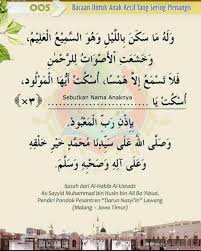 005
Bacaan Untuk Anak Kecil Yang Sering Menangis
وَلَهُ مَا سَكَنَ بِاللَّيْلِ وَهُوَ السَّمِيْعُ الْعَلِيْمُ،
وَخَشَعَتِ الْأَصْوَاتُ لِلرَّحْمٰنِ
فَلَا تَسْمَعُ إِلَّا هَمْسًا، أُسْكُتْ أَيُّهَا الْمَوْلُوْدُ،
أُسْكُتْ يَا .......... ×٣
Sebutkan Nama Anaknya
بِإِذْنِ رَبِّ الْمَعْبُوْدِ.
وَصَلَّى اللهُ عَلَى سَيِّدِنَا مُحَمَّدٍ خَيْرِ خَلْقِهِ
وَعَلَى آلِهِ وَصَحْبِهِ وَسَلَّمَ.
Ijazah dari Al-Habib Al-Ustadz
As Sayyid Muhammad bin Husin bin Ali Ba'Abud,
Pendiri Pondok Pesantren "Darun Nasyi'in" Lawang
(Malang – Jawa Timur)